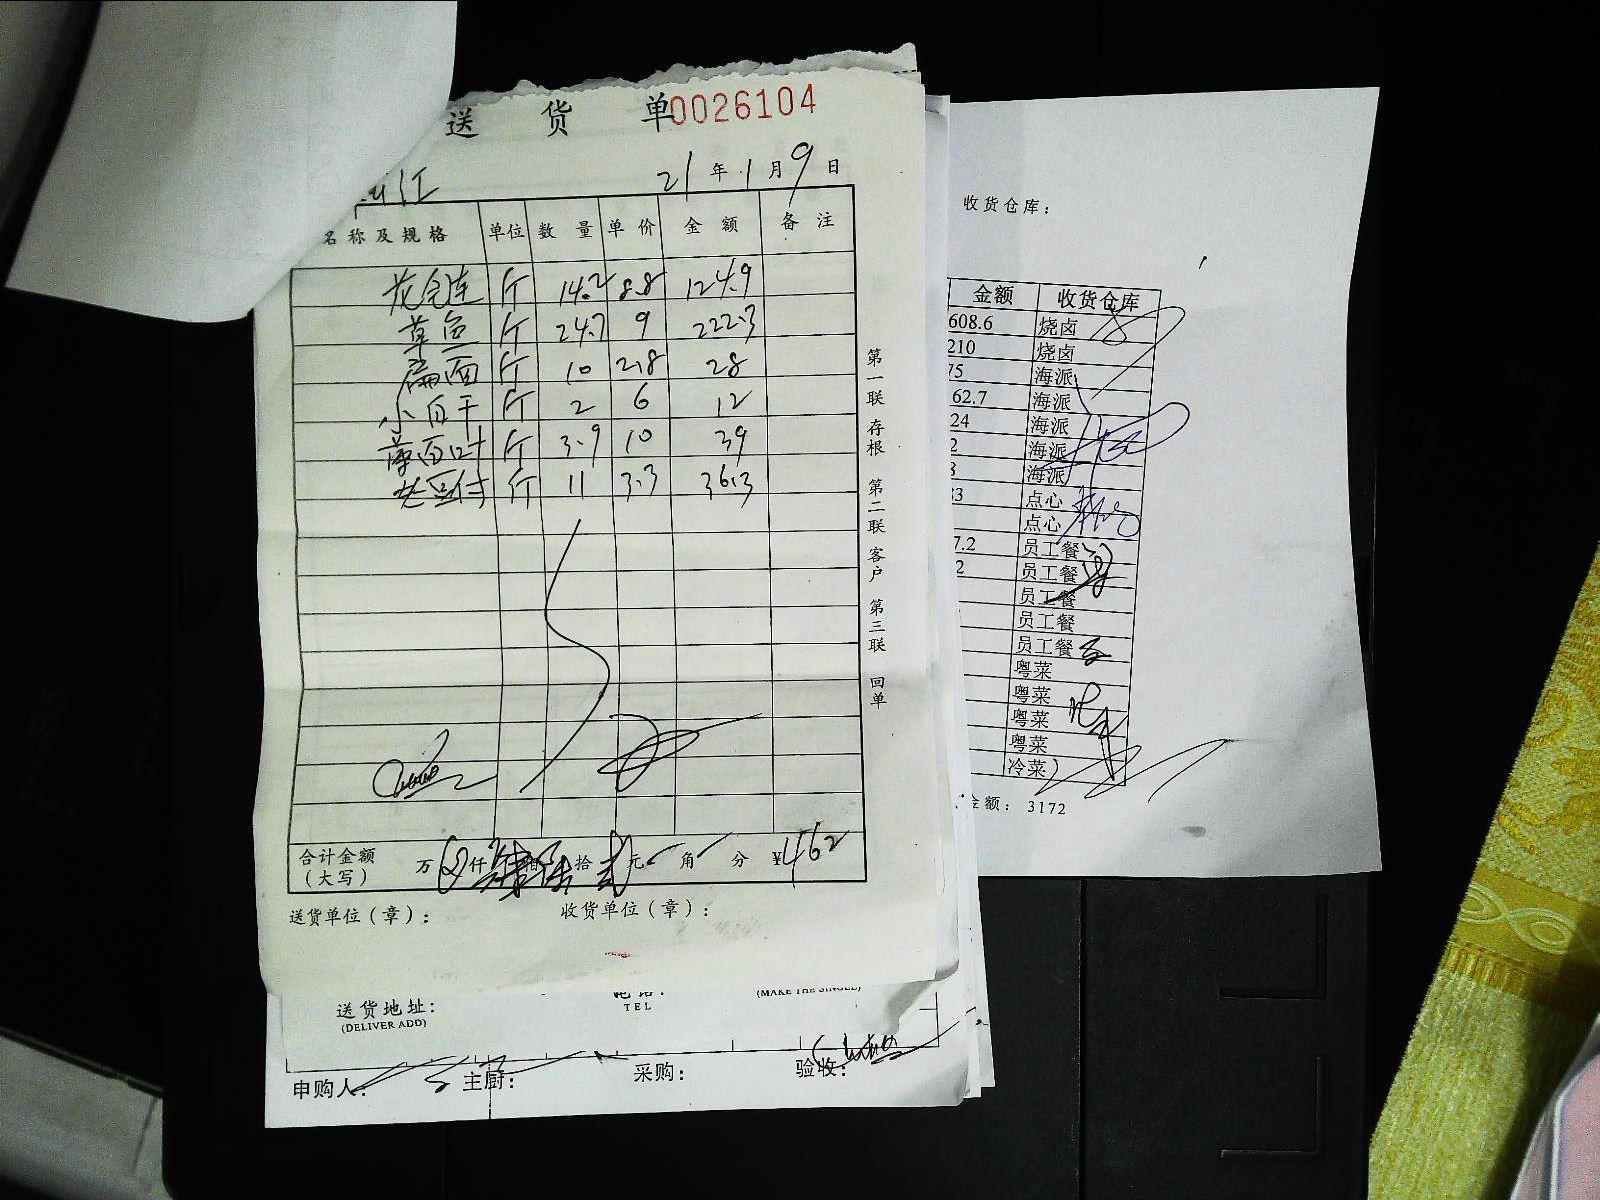 送 货 单 0026104
江
21 年 1 月 9 日
名称及规格 单位 数量 单价 金额 备注
斤 14.2 8.8 124.9
草鱼 斤 24.7 9 222.3
扁面 斤 10 2.8 28
小白干 斤 2 6 12
薄百叶 斤 3.9 10 39
老豆付 斤 11 3.3 36.3
合计金额
(大写)
万 仟 佰 拾 元 角 分 ¥462
送货单位(章): 收货单位(章):
第一联 存根 第二联 客户 第三联 回单
送货地址:
(DELIVER ADD)
TEL
(MAKE THE SINGLE)
申购人: 主厨: 采购: 验收:
收货仓库:
金额 收货仓库
608.6 烧卤
210 烧卤
75 海派
62.7 海派
24 海派
2 海派
海派
33 点心
点心
7.2 员工餐
2 员工餐
员工餐
员工餐
员工餐
粤菜
粤菜
粤菜
粤菜
冷菜
金额: 3172